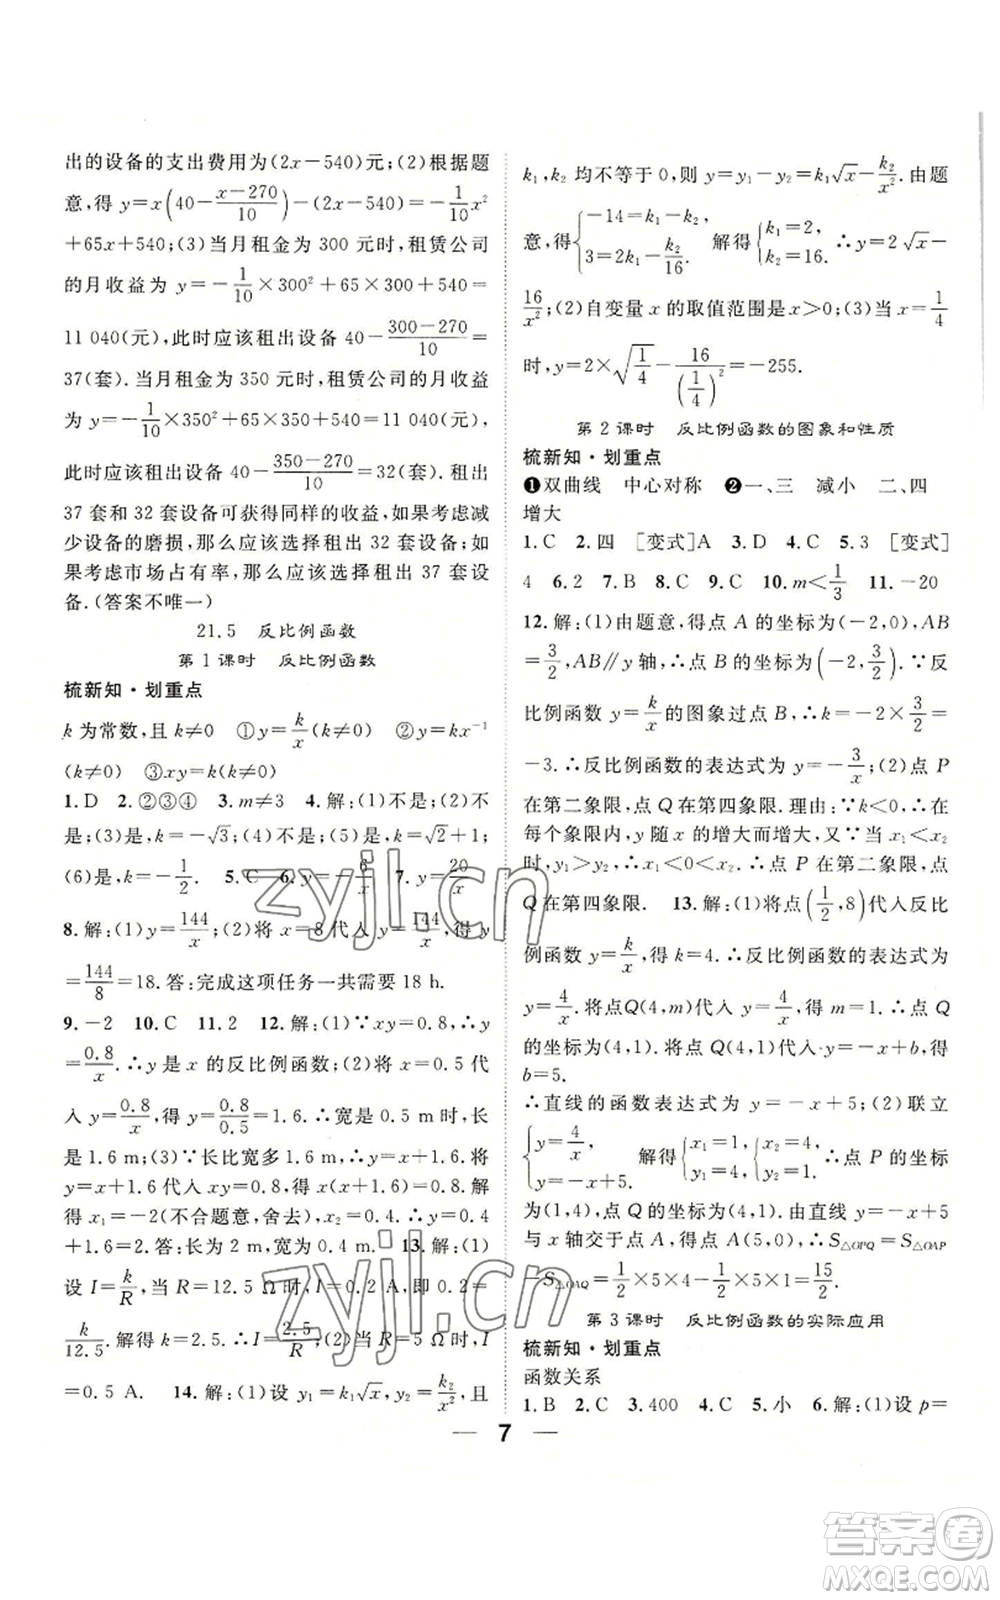 出的设备的支出费用为(2x－540)元;(2)根据题
意,得 y=x(40－(x－270)/10)－(2x－540)=－1/10x²
+65x+540;(3)当月租金为 300 元时,租赁公司
的月收益为 y=－1/10×300²+65×300+540=
11 040(元),此时应该租出设备 40－(300－270)/10=
37(套).当月租金为 350 元时,租赁公司的月收益
为 y=－1/10×350²+65×350+540=11 040(元),
此时应该租出设备 40－(350－270)/10=32(套).因为
37 套和 32 套设备可获得同样的收益,如果考虑减
少设备的磨损,那么应该选择租出 32 套设备;如
果考虑市场占有率,那么应该选择租出 37 套设
备.(答案不唯一)
21.5 反比例函数
第 1 课时 反比例函数
梳新知·划重点
k 为常数,且 k≠0 ①y=k/x(k≠0) ②y=kx⁻¹
(k≠0) ③xy=k(k≠0)
1.D 2.②③④ 3.m≠3 4.解:(1)不是;(2)不
是;(3)是,k=－√3;(4)不是;(5)是,k=√2+1;
(6)是,k=－1/2. 5.C 6.y=－6/x 7.y=20/x
8.解:(1)y=144/x;(2)将 x=8 代入 y=144/x,得 y
=144/8=18.答:完成这项任务一共需要 18 h.
9.－2 10.C 11.2 12.解:(1)∵xy=0.8,∴y
=0.8/x.∴y 是 x 的反比例函数;(2)将 x=0.5 代
入 y=0.8/x,得 y=0.8/0.5=1.6.∴宽是 0.5 m 时,长
是 1.6 m;(3)∵长比宽多 1.6 m,∴y=x+1.6.将
y=x+1.6 代入 xy=0.8,得 x(x+1.6)=0.8.解
得 x₁=－2(不合题意,舍去),x₂=0.4.∴y=0.4
+1.6=2.答:长为 2 m,宽为 0.4 m. 13.解:(1)
设 I=k/R,当 R=12.5 Ω时,I=0.2 A,即 0.2=
k/12.5.解得 k=2.5.∴I=2.5/R;(2)当 R=5 Ω时,I
=0.5 A. 14.解:(1)设 y₁=k₁√x,y₂=k₂/x²,且
k₁,k₂ 均不等于 0,则 y=y₁－y₂=k₁√x－k₂/x².由题
意,得{－14=k₁－k₂, 3=2k₁－k₂/16. 解得{k₁=2, k₂=16. ∴y=2√x－
16/x²;(2)自变量 x 的取值范围是 x>0;(3)当 x=1/4
时,y=2×√(1/4)－16/(1/4)²=－255.
第 2 课时 反比例函数的图象和性质
梳新知·划重点
❶双曲线 中心对称 ❷一、三 减小 二、四
增大
1.C 2.四 [变式]A 3.D 4.C 5.3 [变式]
4 6.2 7.B 8.C 9.C 10.m<1/3 11.－20
12.解:(1)由题意,得点 A 的坐标为(－2,0),AB
=3/2,AB∥y 轴,∴点 B 的坐标为(－2,3/2).∵反
比例函数 y=k/x的图象过点 B,∴k=－2×3/2=
－3.∴反比例函数的表达式为 y=－3/x;(2)点 P
在第二象限,点 Q 在第四象限.理由:∵k<0,∴在
每个象限内,y 随 x 的增大而增大.又∵当 x₁<x₂
时,y₁>y₂,∴x₁<0<x₂.∴点 P 在第二象限,点
Q 在第四象限. 13.解:(1)将点(1/2,8)代入反比
例函数 y=k/x,得 k=4.∴反比例函数的表达式为
y=4/x.将点 Q(4,m)代入 y=4/x,得 m=1.∴点 Q
的坐标为(4,1).将点 Q(4,1)代入 y=－x+b,得
b=5.
∴直线的函数表达式为 y=－x+5;(2)联立
{y=4/x, y=－x+5. 解得{x₁=1, y₁=4,{x₂=4, y₂=1. ∴点 P 的坐标
为(1,4),点 Q 的坐标为(4,1).∵直线 y=－x+5
与 x 轴交于点 A,得点 A(5,0),∴S△OPQ=S△OAP
－S△OAQ=1/2×5×4－1/2×5×1=15/2.
第 3 课时 反比例函数的实际应用
梳新知·划重点
函数关系
1.B 2.C 3.400 4.C 5.小 6.解:(1)设 p=
— 7 —
zyjl.cn
zyjl.cn
答案圈
MXQE.COM